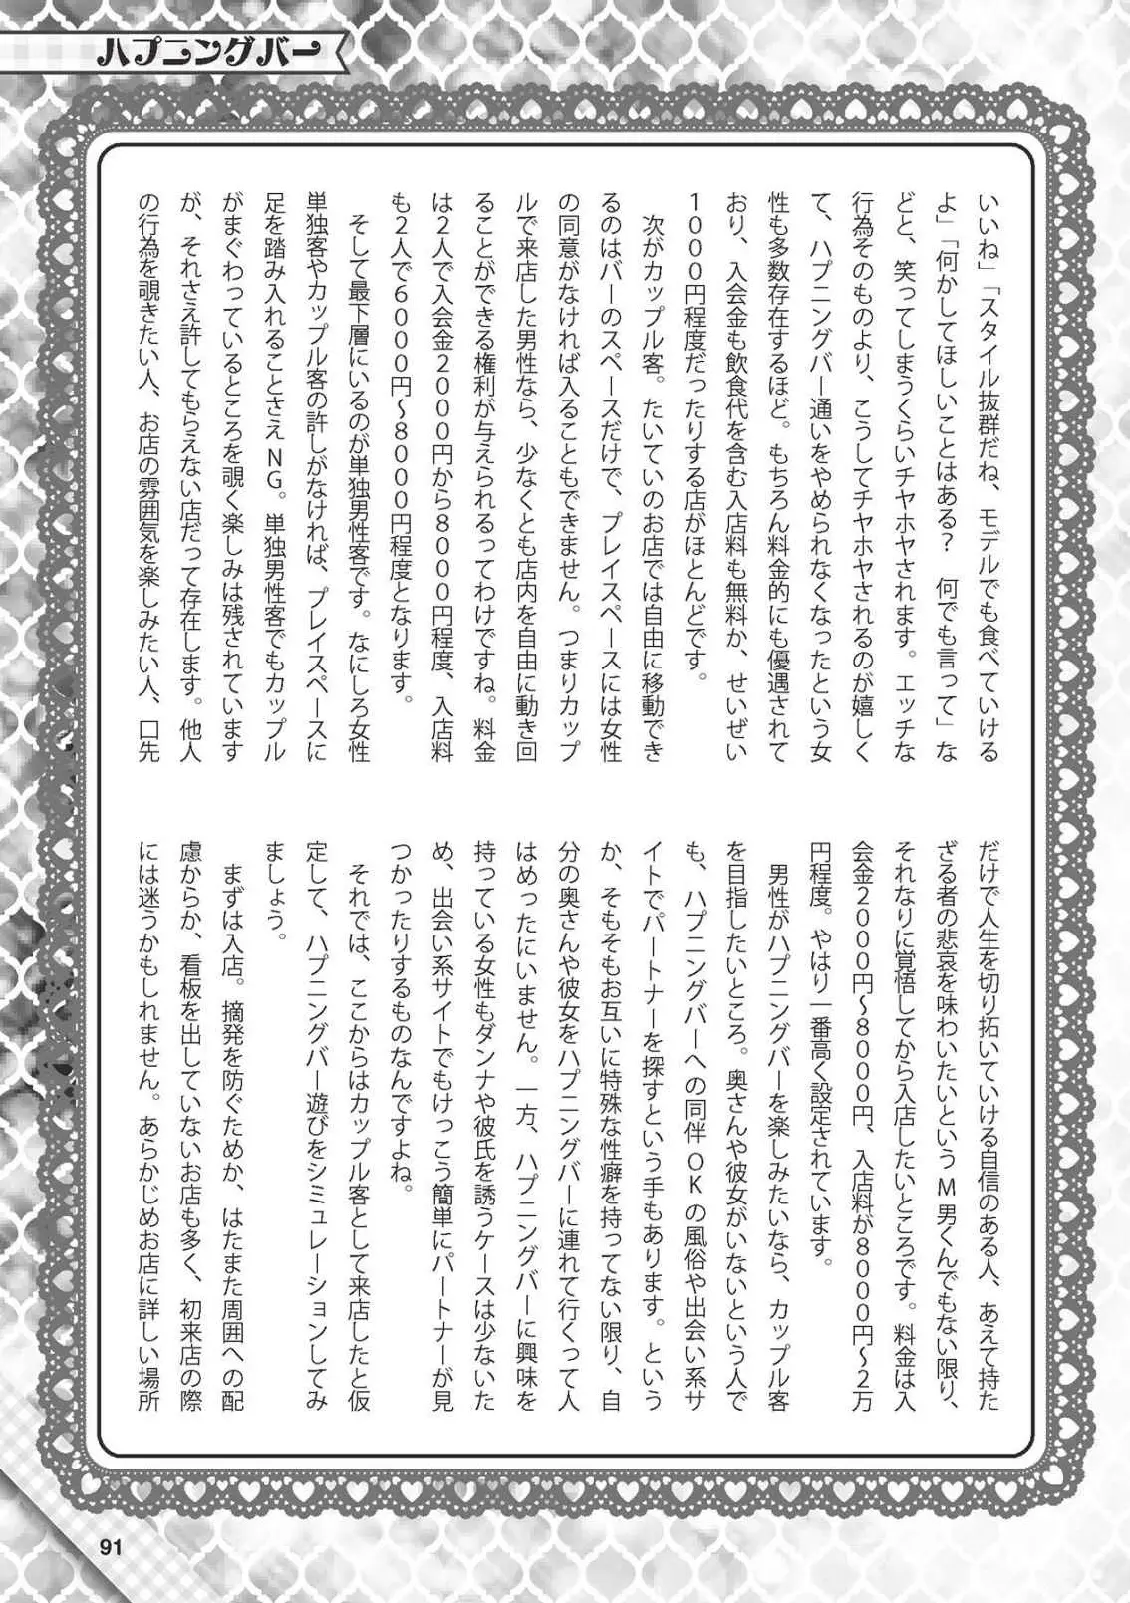 ハプニングバー
いいね」「スタイル抜群だね、モデルでも食べていける
よ」「何かしてほしいことはある？　何でも言って」な
どと、笑ってしまうくらいチヤホヤされます。エッチな
行為そのものより、こうしてチヤホヤされるのが嬉しく
て、ハプニングバー通いをやめられなくなったという女
性も多数存在するほど。もちろん料金的にも優遇されて
おり、入会金も飲食代を含む入店料も無料か、せいぜい
1000円程度だったりする店がほとんどです。
　次がカップル客。たいていのお店では自由に移動でき
るのはバーのスペースだけで、プレイスペースには女性
の同意がなければ入ることもできません。つまりカップ
ルで来店した男性なら、少なくとも店内を自由に動き回
ることができる権利が与えられるってわけですね。料金
は2人で入会金2000円から8000円程度、入店料
も2人で6000円〜8000円程度となります。
　そして最下層にいるのが単独男性客です。なにしろ女性
単独客やカップル客の許しがなければ、プレイスペースに
足を踏み入れることさえNG。単独男性客でもカップル
がまぐわっているところを覗く楽しみは残されています
が、それさえ許してもらえない店だって存在します。他人
の行為を覗きたい人、お店の雰囲気を楽しみたい人、口先
だけで人生を切り拓いていける自信のある人、あえて持た
ざる者の悲哀を味わいたいというM男くんでもない限り、
それなりに覚悟してから入店したいところです。料金は入
会金2000円〜8000円、入店料が8000円〜2万
円程度。やはり一番高く設定されています。
　男性がハプニングバーを楽しみたいなら、カップル客
を目指したいところ。奥さんや彼女がいないという人で
も、ハプニングバーへの同伴OKの風俗や出会い系サ
イトでパートナーを探すという手もあります。という
か、そもそもお互いに特殊な性癖を持ってない限り、自
分の奥さんや彼女をハプニングバーに連れて行くって人
はめったにいません。一方、ハプニングバーに興味を
持っている女性もダンナや彼氏を誘うケースは少ないた
め、出会い系サイトでもけっこう簡単にパートナーが見
つかったりするものなんですよね。
　それでは、ここからはカップル客として来店したと仮
定して、ハプニングバー遊びをシミュレーションしてみ
ましょう。
　まずは入店。摘発を防ぐためか、はたまた周囲への配
慮からか、看板を出していないお店も多く、初来店の際
には迷うかもしれません。あらかじめお店に詳しい場所
91